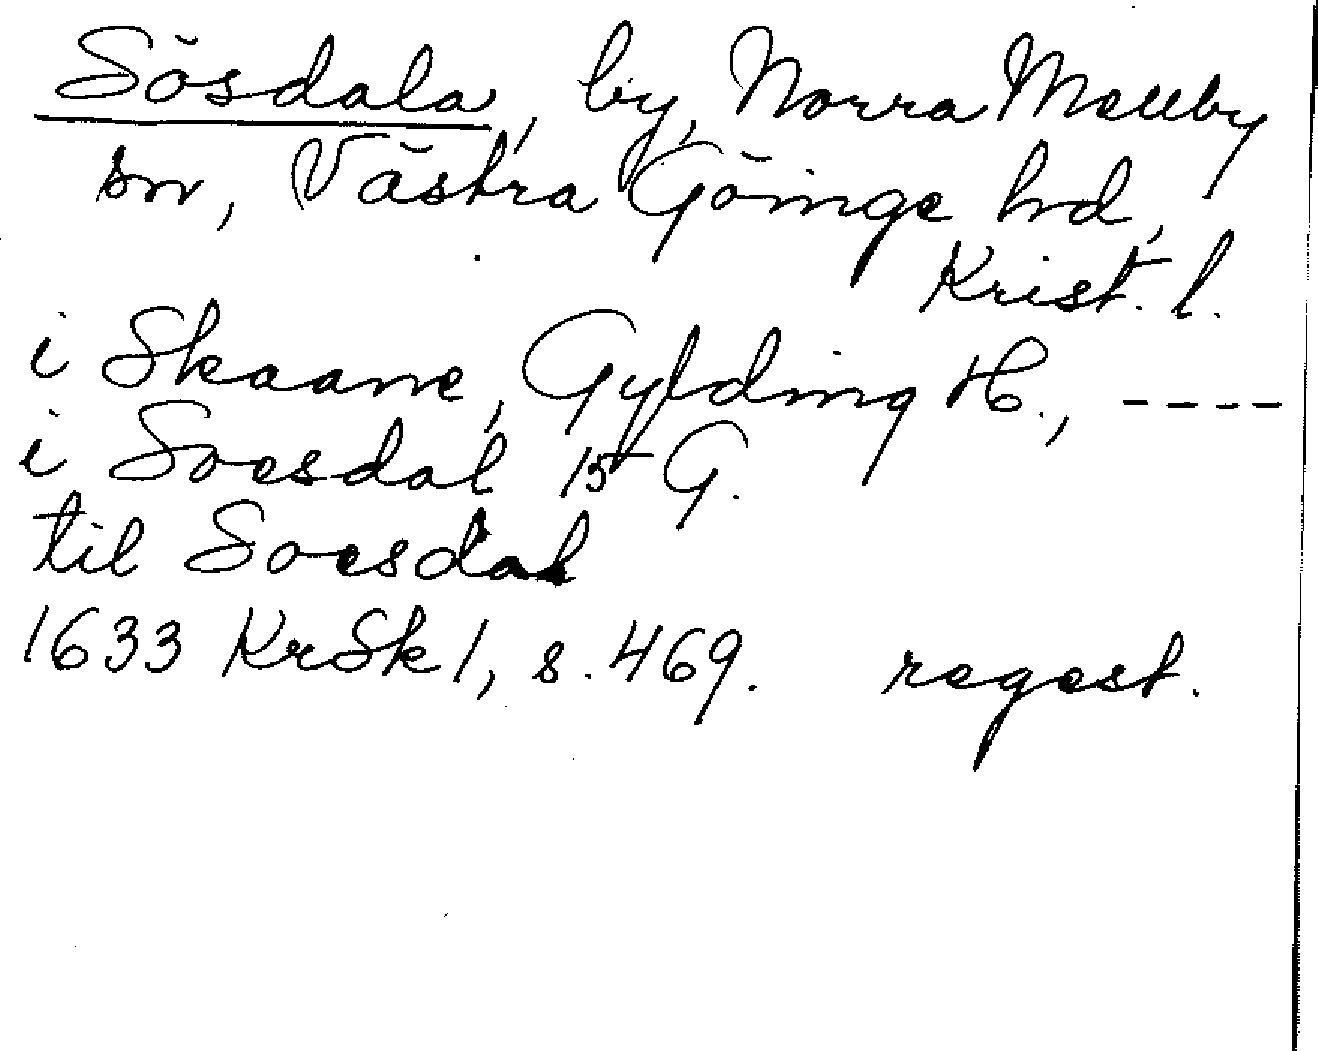 Sösdala, by, Norra Mellby
sn, Västra Göinge hd,
Krist. l.
i Skaane, Gylding H., ----
i Soesdal 15 G.
til Soesdal
1633 KrSk 1, s. 469. regest.